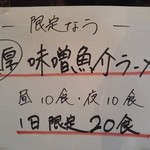 限定なう
厚 味噌魚介ラーメ
昼10食・夜10食
1日限定20食